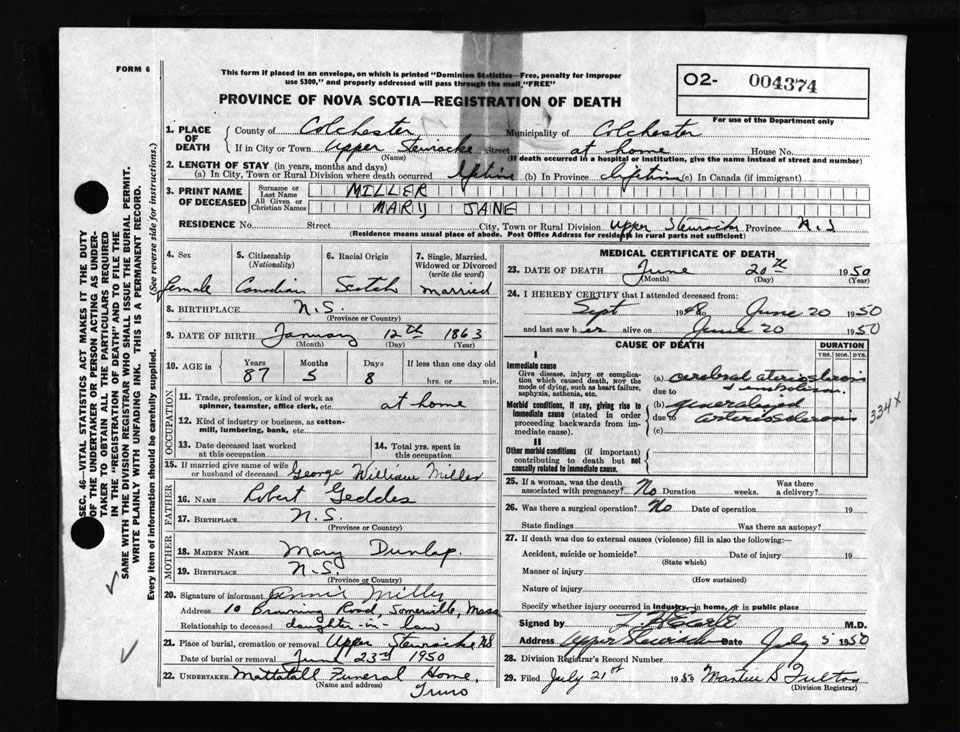 FORM 6
This form if placed in an envelope, on which is printed "Dominion Statistics—Free, penalty for improper
use $300," and properly addressed will pass through the mail "FREE"
O2- 004374
PROVINCE OF NOVA SCOTIA—REGISTRATION OF DEATH
For use of the Department only
SEC. 46—VITAL STATISTICS ACT MAKES IT THE DUTY
OF THE UNDERTAKER OR PERSON ACTING AS UNDER-
TAKER TO OBTAIN ALL THE PARTICULARS REQUIRED
IN THE "REGISTRATION OF DEATH" AND TO FILE THE
SAME WITH THE DIVISION REGISTRAR WHO SHALL ISSUE THE BURIAL PERMIT.
WRITE PLAINLY WITH UNFADING INK. THIS IS A PERMANENT RECORD.
Every item of information should be carefully supplied. (See reverse side for instructions.)
1. PLACE OF DEATH { County of Colchester Municipality of Colchester
If in City or Town Upper Stewiacke Street at home House No.
(Name) (If death occurred in a hospital or institution, give the name instead of street and number)
2. LENGTH OF STAY (in years, months and days)
(a) In City, Town or Rural Division where death occurred lifetime (b) In Province lifetime (c) In Canada (if immigrant)
3. PRINT NAME OF DECEASED { Surname or Last Name MILLER
All Given or Christian Names MARY JANE
RESIDENCE No. Street City, Town or Rural Division Upper Stewiacke Province N.S
(Residence means usual place of abode. Post Office Address for residents in rural parts not sufficient)
4. Sex 5. Citizenship (Nationality) 6. Racial Origin 7. Single, Married, Widowed or Divorced (write the word)
Female Canadian Scotch married
8. BIRTHPLACE N.S.
(Province or Country)
9. DATE OF BIRTH January 12th 1863
(Month) (Day) (Year)
10. AGE in Years Months Days If less than one day old
87 5 8 hrs. or min.
OCCUPATION
11. Trade, profession, or kind of work as spinner, teamster, office clerk, etc. at home
12. Kind of industry or business, as cotton-mill, lumbering, bank, etc.
13. Date deceased last worked at this occupation 14. Total yrs. spent in this occupation
15. If married give name of wife or husband of deceased George William Miller
FATHER
16. NAME Robert Geddes
17. BIRTHPLACE N.S.
(Province or Country)
MOTHER
18. MAIDEN NAME Mary Dunlap.
19. BIRTHPLACE N.S.
(Province or Country)
20. Signature of informant Annie Miller
Address 10 Browning Road, Somerville, Mass
Relationship to deceased daughter-in-law
21. Place of burial, cremation or removal Upper Stewiacke NS
Date of burial or removal June 23rd 1950
22. UNDERTAKER Mattatall Funeral Home,
(Name and address) Truro
MEDICAL CERTIFICATE OF DEATH
23. DATE OF DEATH June 20th 1950
(Month) (Day) (Year)
24. I HEREBY CERTIFY that I attended deceased from:
Sept 1948 to June 20 1950
and last saw her alive on June 20 1950
CAUSE OF DEATH DURATION
YRS. MOS. DYS.
I
Immediate cause
Give disease, injury or complication which caused death, NOT the mode of dying, such as heart failure, asphyxia, asthenia, etc.
(a) cerebral arteriosclerosis
+ embolism.
due to
Morbid conditions, if any, giving rise to immediate cause (stated in order proceeding backwards from immediate cause).
(b) generalized
due to arteriosclerosis
(c)
334 X
II
Other morbid conditions (if important) contributing to death but not causally related to immediate cause.
25. If a woman, was the death associated with pregnancy? No Duration weeks. Was there a delivery?
26. Was there a surgical operation? No Date of operation 19
State findings Was there an autopsy?
27. If death was due to external causes (violence) fill in also the following:—
Accident, suicide or homicide? Date of injury 19
(State which)
Manner of injury
(How sustained)
Nature of injury
Specify whether injury occurred in Industry, in home, or in public place
Signed by M.D.
Address Upper Stewiacke Date July 5 1950
28. Division Registrar's Record Number
29. Filed July 21st 1950 S Fulton
(Division Registrar)